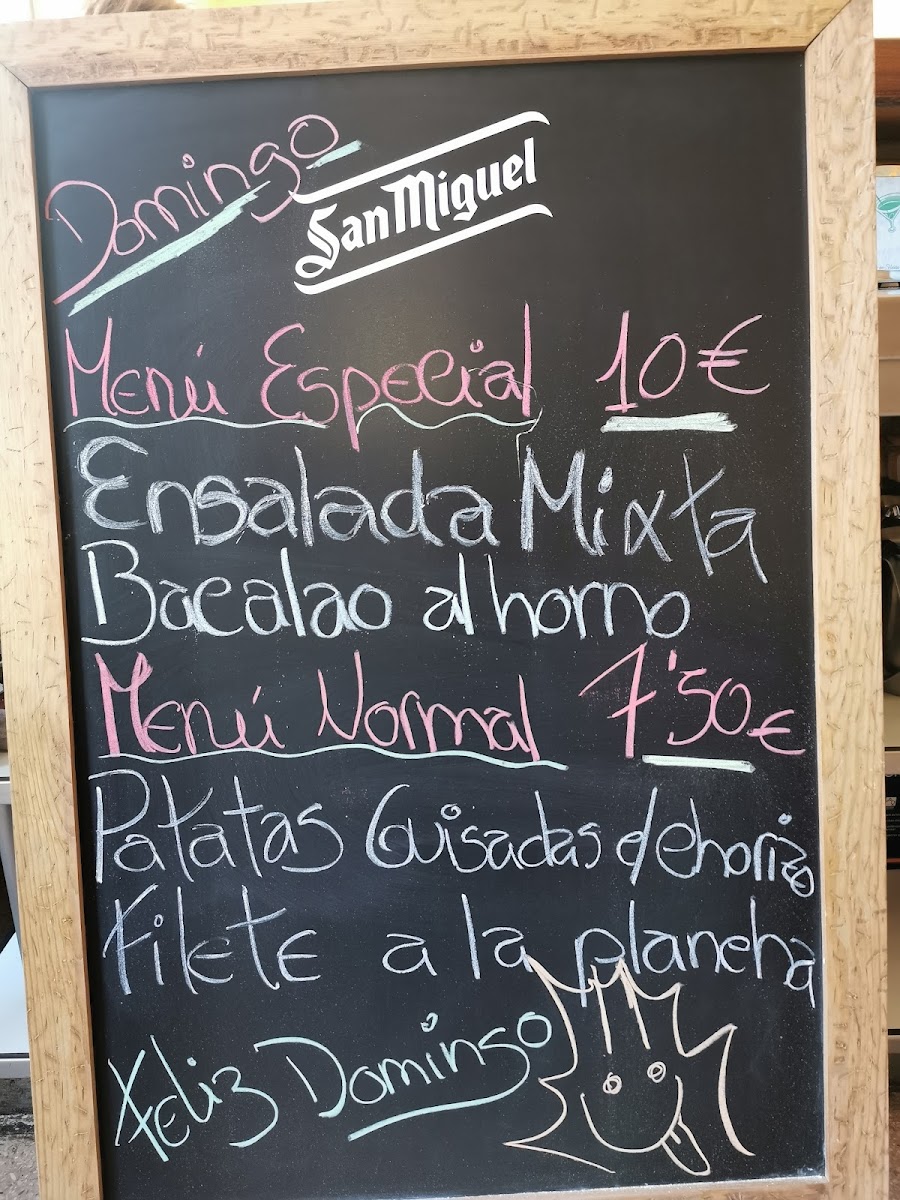 Domingo
San Miguel
Menú Especial 10€
Ensalada Mixta
Bacalao al horno
Menú Normal 7'50€
Patatas Guisadas c/chorizo
Filete a la plancha
Feliz Domingo